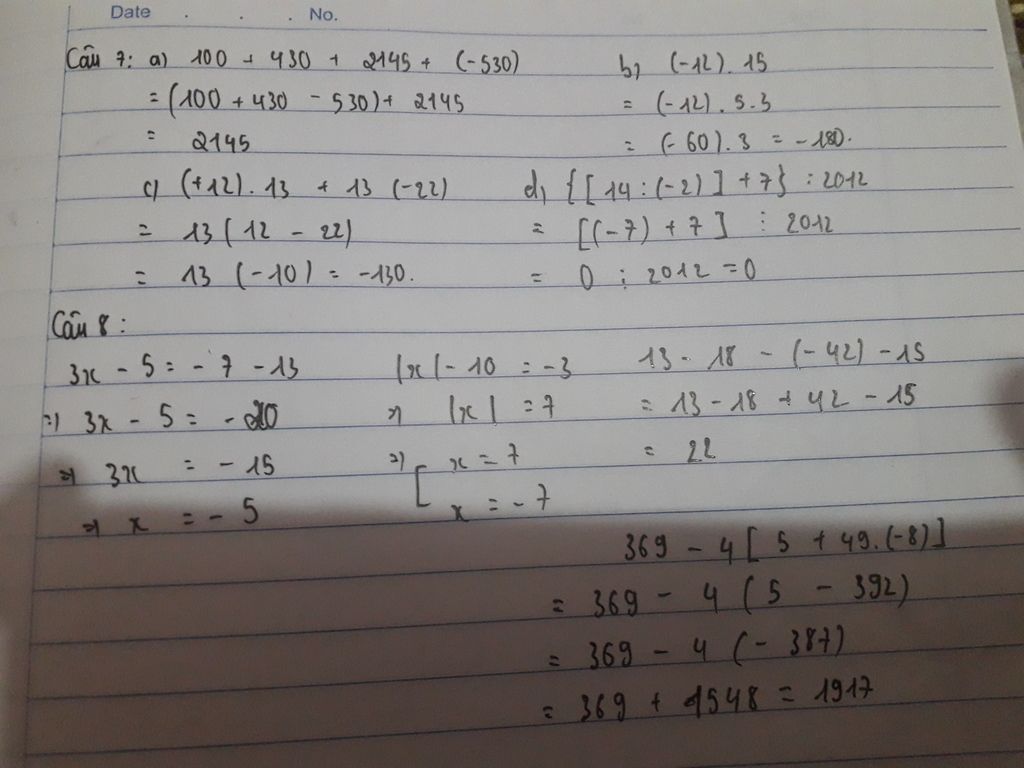 Date . . . No.
Câu 7: a) 100 + 430 + 2145 + (-530)
= (100 + 430 - 530) + 2145
= 2145
b) (-12). 15
= (-12). 5.3
= (-60). 3 = -180.
c) (+12). 13 + 13 (-22)
= 13 ( 12 - 22)
= 13 (-10) = -130.
d) {[ 14 : (-2) ] + 7} : 2012
= [(-7) + 7 ] : 2012
= 0 : 2012 = 0
Câu 8 :
3x - 5 = - 7 - 13
=> 3x - 5 = - 20
=> 3x = - 15
=> x = - 5
|x| - 10 = -3
=> |x| = 7
=> [ x = 7
x = - 7
13 - 18 - (-42) - 15
= 13 - 18 + 42 - 15
= 22
369 - 4 [ 5 + 49. (-8) ]
= 369 - 4 ( 5 - 392)
= 369 - 4 (- 387)
= 369 + 1548 = 1917